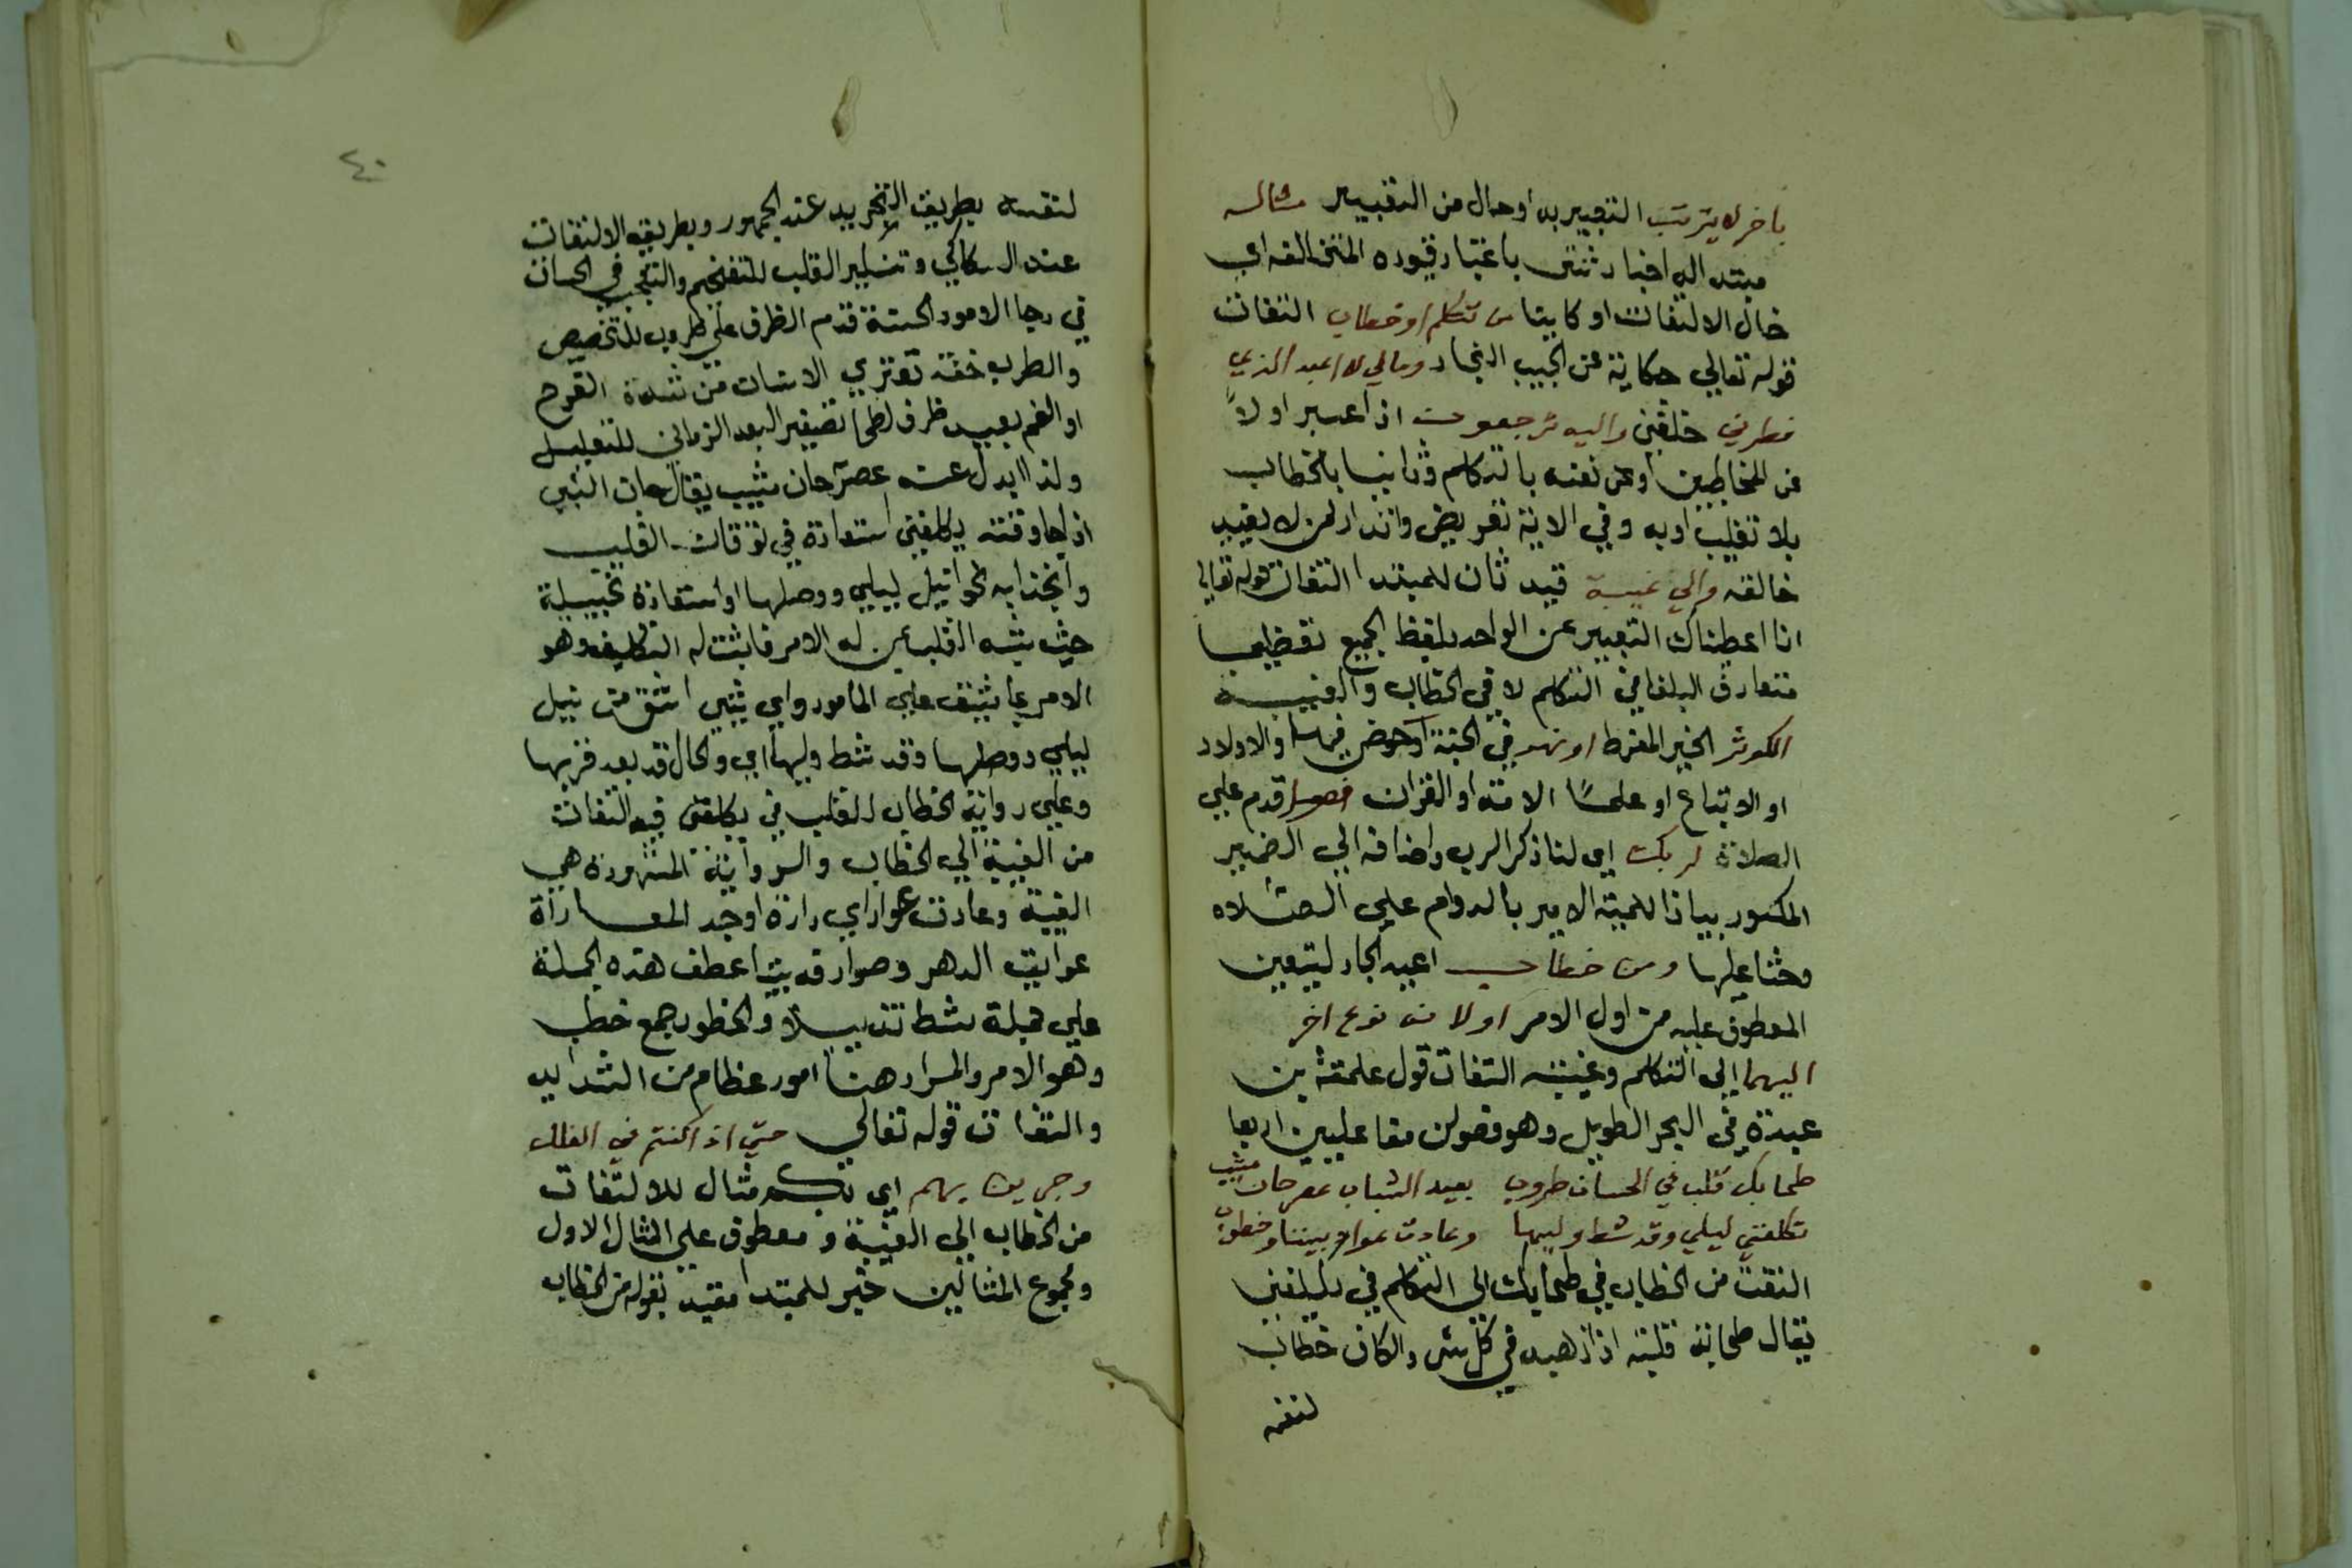 باخر لا يترتب التعبير به او حال من التعبير مثاله
مبتدا له اخبار ثنتى باعتبار قيوده المتخالفه اي
خال الالتفات او كاينا من تكلم او خطاب التفات
قوله تعالي حكاية عن الحبيب النجار ومالي لا اعبد الذي
فطرني خلقني واليه ترجعون اذا عبر اولاً
عن المخاطبين او عن نفسه بالتكلم وثانيا بالخطاب
بلا تغليب او به وفي الاية تعريض وانذار لمن لا يعبد
خالقه والي غيبة قيد ثان للمبتدا التفات قوله تعالي
انا اعطيناك التعبير عن الواحد بلفظ الجمع تعظيما
متعارف البلغا في التكلم لا في الخطاب والغيبة
الكوثر الخير المفرط او نهر في الجنة او حوض فيها والاولاد
او الاتباع او علما الامة او القران فصل قدم علي
الصلاة لربك اي لنا ذكر الرب واضافه الي الضمير
المكسور بيانا للمية الامر بالدوام علي الصلاه
وحثا عليها ومن خطاب اعيد الجار ليتعين
المعطوف عليه من اول الامر اولا من نوع اخر
اليهما الي التكلم وغيبة التفات قول علقمة بن
عبدة في البحر الطويل وهو فعولن مفاعيلين اربعا
طحا بك قلب في الحسان طروب بعيد الشباب عصر حان مشيب
تكلفني ليلي وقد شط وليها وعادت عواد بيننا وخطوب
التفت من الخطاب في طحا بك الي التكلم في يكلفني
يقال طحا به قلبه اذا ذهب به في كل شي والكاف خطاب
لنفسه
٤٠
لنفسه بطريق التجريد عند الجمهور وبطريق الالتفات
عند السكاكي وتنكير القلب للتفخيم والتعجب في الحسان
في رجا الامور الحسنة قدم الظرف علي طروب للتخصيص
والطرب خفة تعتري الانسان من شدة الفرح
او الغم بعيد ظرف لطحا تصغير البعد الزماني للتعليل
ولذا ابدل عنه عصر حان مشيب يقال حان الشي
اذا جا وقته يكلفني استعارة في توقان القلب
وانجذابه نحو نيل ليلي ووصلها او استعارة تخييلية
حيث شبه القلب بمن له الامر فاثبت له التكليف وهو
الامر بما يشق علي المامور واي شي اشق من نيل
ليلي ووصلها وقد شط وليها اي والحال قد بعد قربها
وعلي رواية الخطاب للقلب في يكلفني فيه التفات
من الغيبة الي الخطاب والرواية المشهورة هي
الغيبة وعادت عواد اي دارة او جد المعاداة
عوايق الدهر وصوارفه بيننا عطف هذه الجملة
علي جملة شط تذييلا والخطوب جمع خطب
وهو الامر والمراد هنا امور عظام من الشدايد
والتفات قوله تعالي حتي اذا كنتم في الفلك
وجرين بهم اي بكم مثال للالتفات
من الخطاب الي الغيبة ومعطوف علي المثال الاول
ومجموع المثالين خبر للمبتدا مقيد بقوله من الخطاب